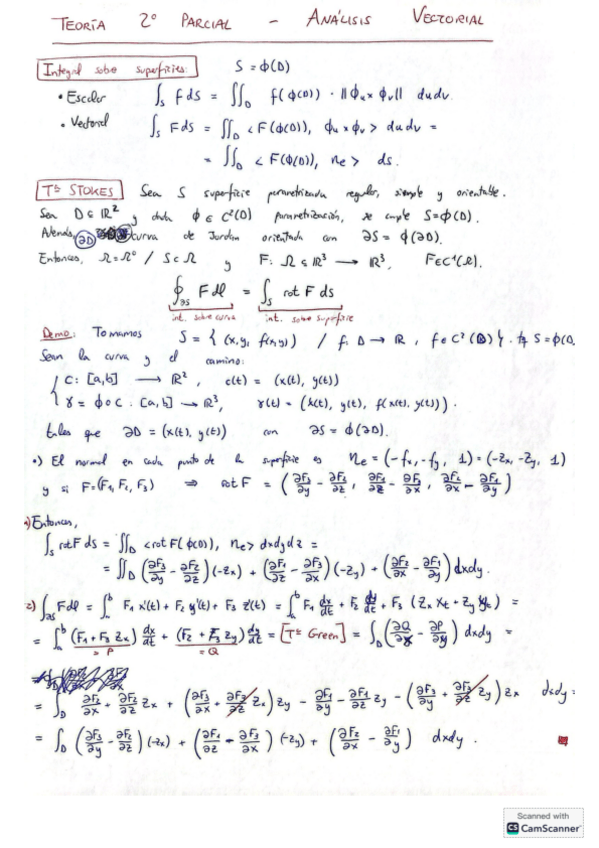 TEORÍA 2º PARCIAL - ANÁLISIS VECTORIAL
Integral sobre superficies: S = ϕ(D)
• Escalar ∫_S F dS = ∬_D f(ϕ(D)) · ||ϕu × ϕv|| du dv.
• Vectorial ∫_S F dS = ∬_D < F(ϕ(D)), ϕu × ϕv > du dv =
= ∬_D < F(ϕ(D)), ne > ds.
Tª STOKES Sea S superficie parametrizada regular, simple y orientable.
Sea D ⊆ ℝ² y dada ϕ ∈ C²(D) parametrización, se cumple S=ϕ(D).
Además, ∂D curva de Jordan orientada con ∂S = ϕ(∂D).
Entonces, Ω=Ω⁰ / S⊂Ω y F: Ω ⊆ ℝ³ → ℝ³, F∈C¹(Ω).
∮_∂S F dl = ∫_S rot F ds
int. sobre curva int. sobre superficie
Demo: Tomamos S = { (x,y, f(x,y)) / f: D → ℝ, f ∈ C²(D) } . tq S=ϕ(D.
Sean la curva y el camino:
C: [a,b] → ℝ², c(t) = (x(t), y(t))
γ = ϕ∘C : [a,b] → ℝ³, γ(t) = (x(t), y(t), f(x(t), y(t))).
tales que ∂D = (x(t), y(t)) con ∂S = ϕ(∂D).
•) El normal en cada punto de la superficie es ne = (-fx, -fy, 1) = (-Zx, -Zy, 1)
y si F=(F1, F2, F3) ⇒ rot F = (∂F3/∂y - ∂F2/∂z, ∂F1/∂z - ∂F3/∂x, ∂F2/∂x - ∂F1/∂y)
1) Entonces,
∫_S rot F ds = ∬_D < rot F(ϕ(D)), ne > dx dy dz =
= ∬_D (∂F3/∂y - ∂F2/∂z)(-Zx) + (∂F1/∂z - ∂F3/∂x)(-Zy) + (∂F2/∂x - ∂F1/∂y) dx dy.
2) ∫_∂S F dl = ∫_a^b F1 x'(t) + F2 y'(t) + F3 z'(t) = ∫_a^b F1 dx/dt + F2 dy/dt + F3 (Zx Xt + Zy yt) =
= ∫_a^b (F1 + F3 Zx) dx/dt + (F2 + F3 Zy) dy/dt = [Tª Green] = ∫_D (∂Q/∂x - ∂P/∂y) dx dy =
= P = Q
= ∫_D ∂F2/∂x + ∂F2/∂z Zx + (∂F3/∂x + ∂F3/∂z Zx) Zy - ∂F1/∂y - ∂F1/∂z Zy - (∂F3/∂y + ∂F3/∂z Zy) Zx dx dy =
= ∫_D (∂F3/∂y - ∂F2/∂z)(-Zx) + (∂F1/∂z - ∂F3/∂x)(-Zy) + (∂F2/∂x - ∂F1/∂y) dx dy.
Scanned with
CS CamScanner